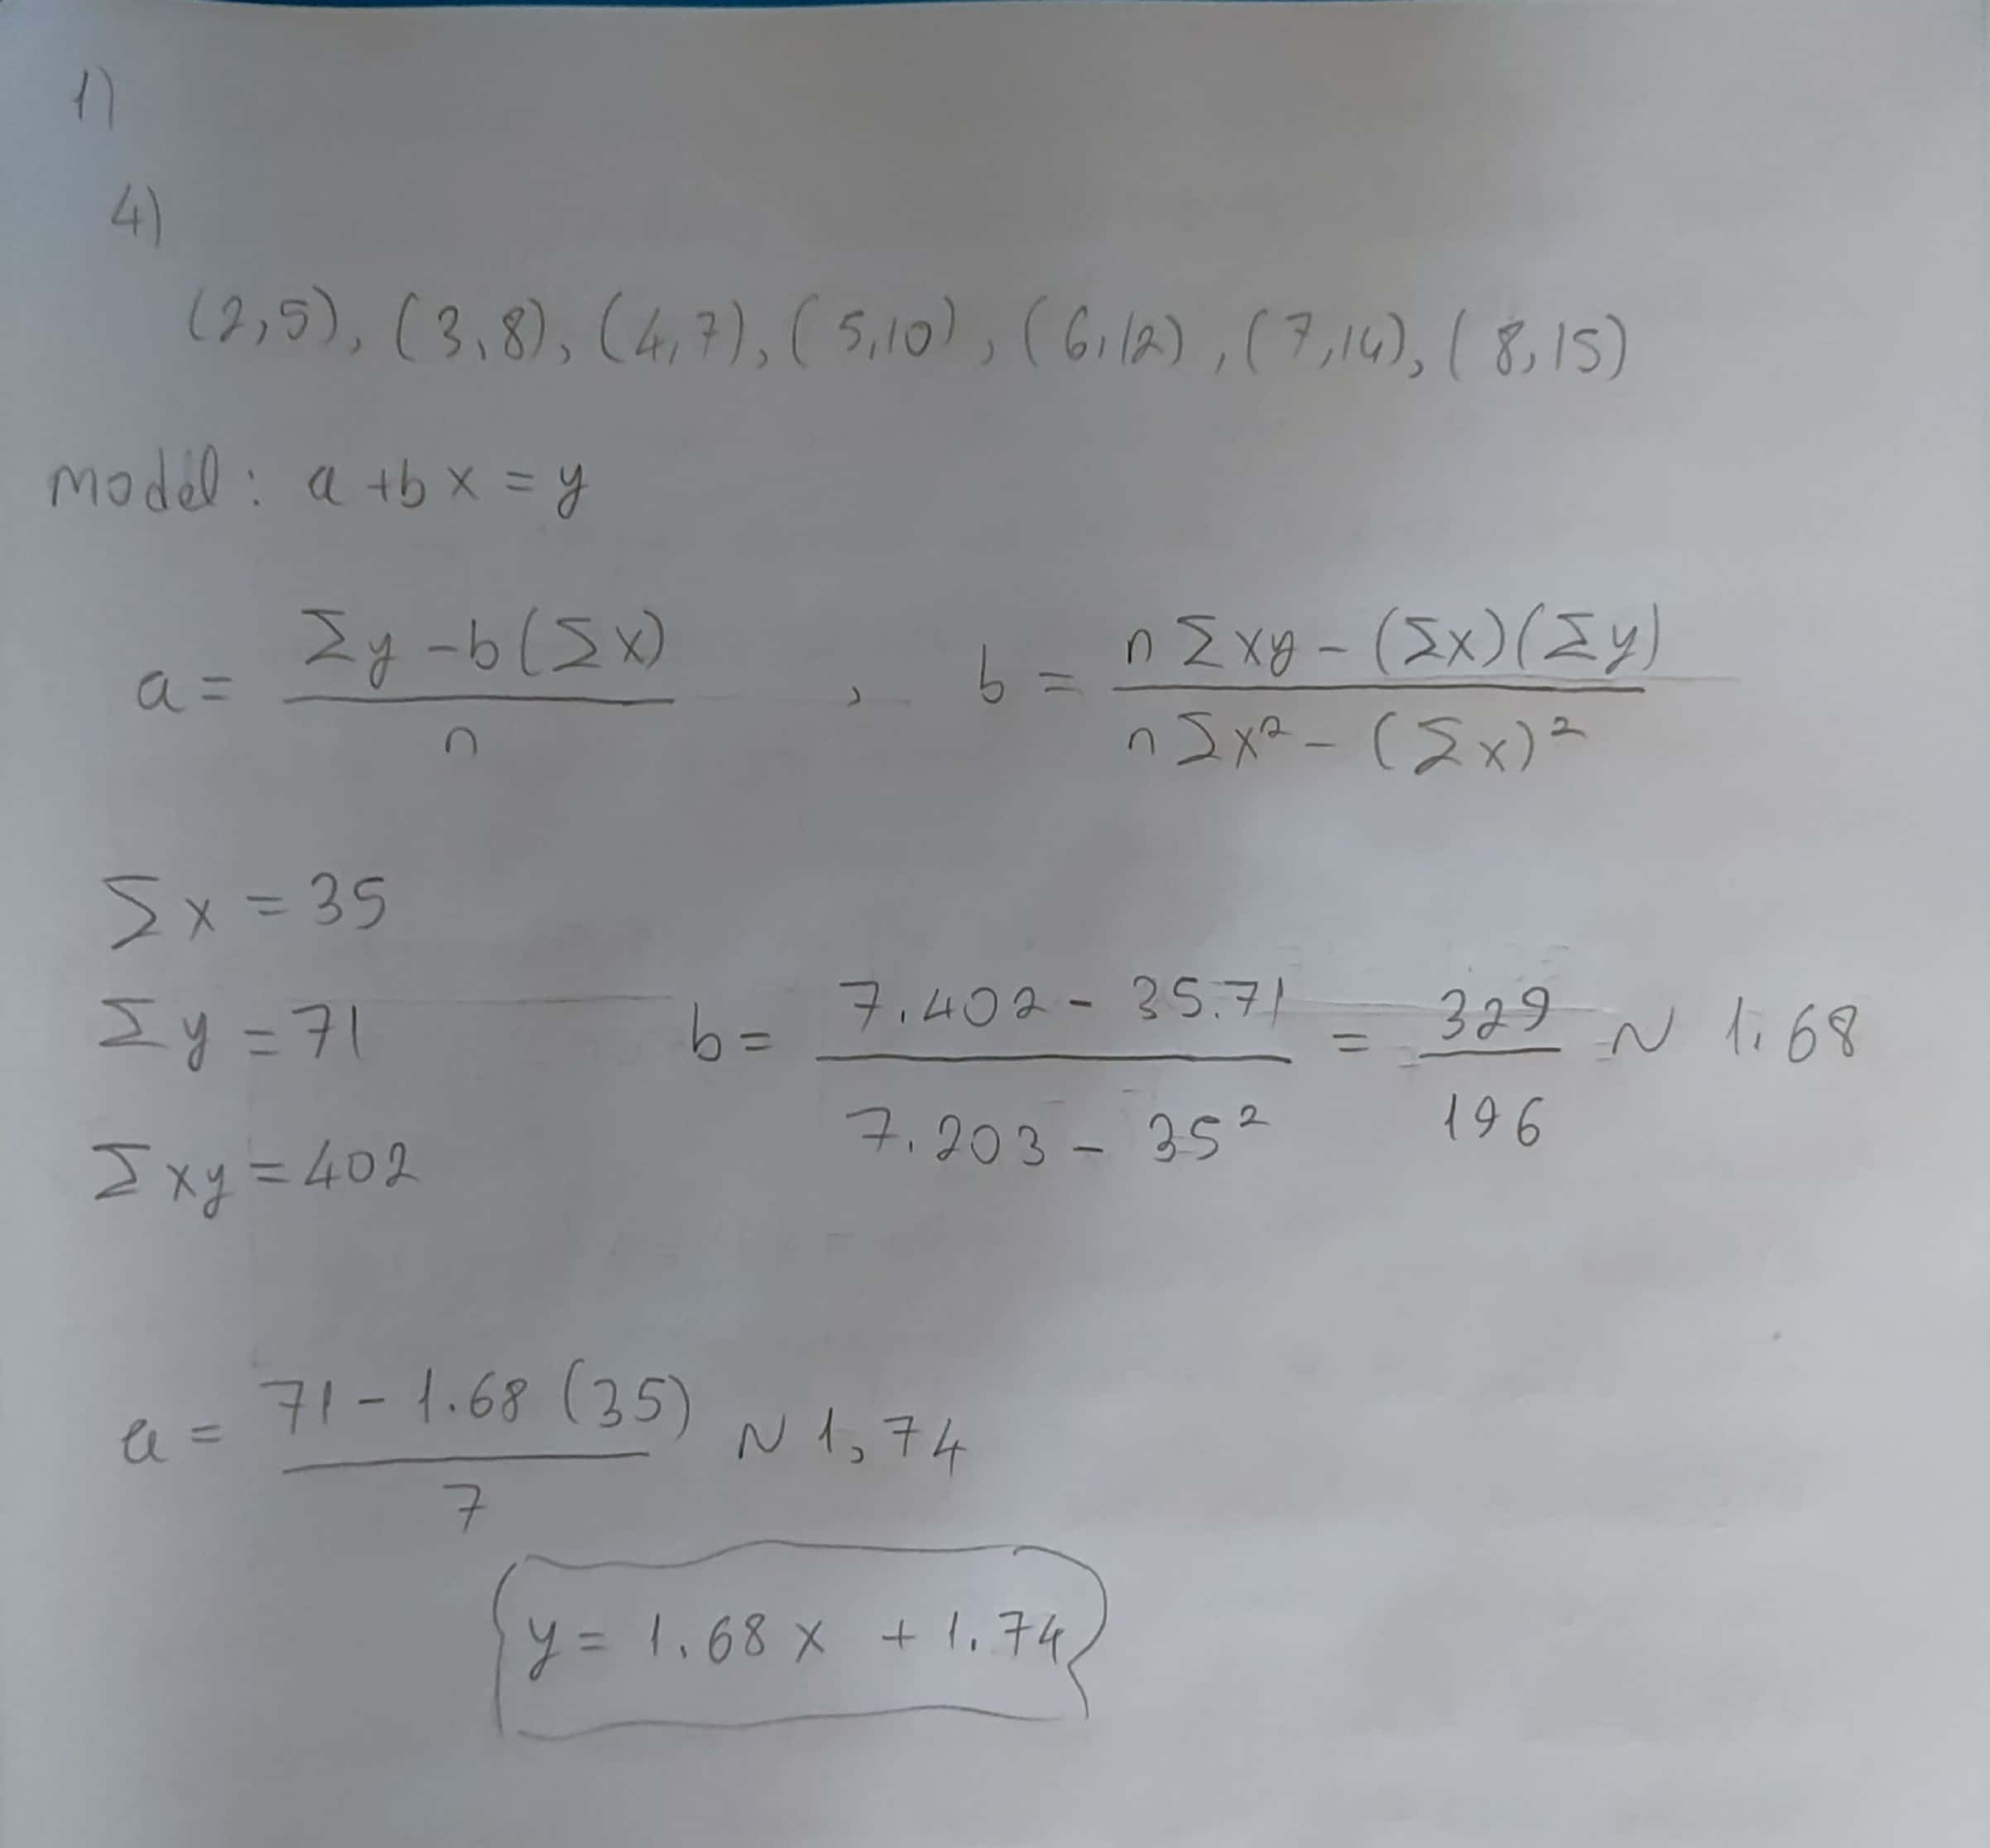 1)
4)
(2,5), (3,8), (4,7), (5,10), (6,12), (7,14), (8,15)
model: a + b x = y
a = (Σy - b(Σx)) / n , b = (n Σxy - (Σx)(Σy)) / (n Σx² - (Σx)²)
Σx = 35
Σy = 71
b = (7.402 - 35.71) / (7.203 - 35²) = 329 / 196 ~ 1.68
Σxy = 402
a = (71 - 1.68 (35)) / 7 ~ 1,74
y = 1.68 x + 1.74